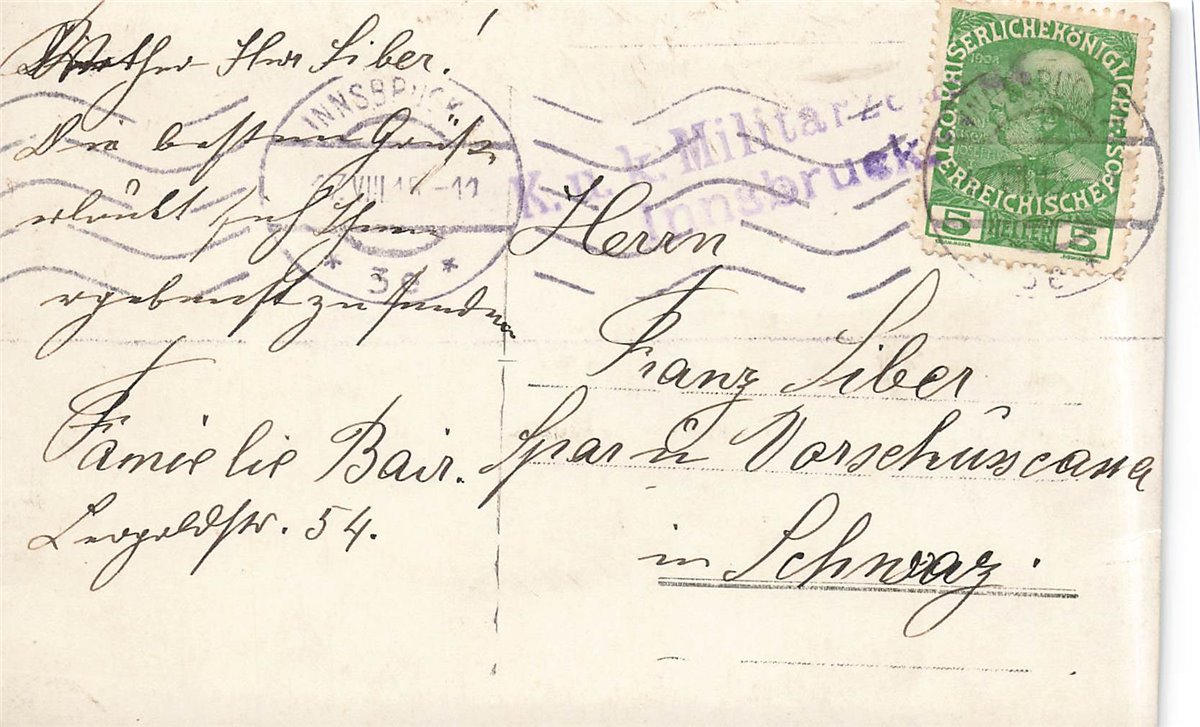 Werther Herr Siber!
Die besten Grüße
erlaubt sich Ihnen
ergebenst zu senden
Famielie Bair.
Leopoldstr. 54.
INNSBRUCK
VIII 15 -11
* 3c *
K. u. k. Militärze
Innsbruck.
KAISERLICHEKÖNIGLICHE
ÖSTERREICHISCHE POST
1908
5 HELLER 5
Herrn
Franz Siber
Spar u Vorschusscassa
in Schwaz.